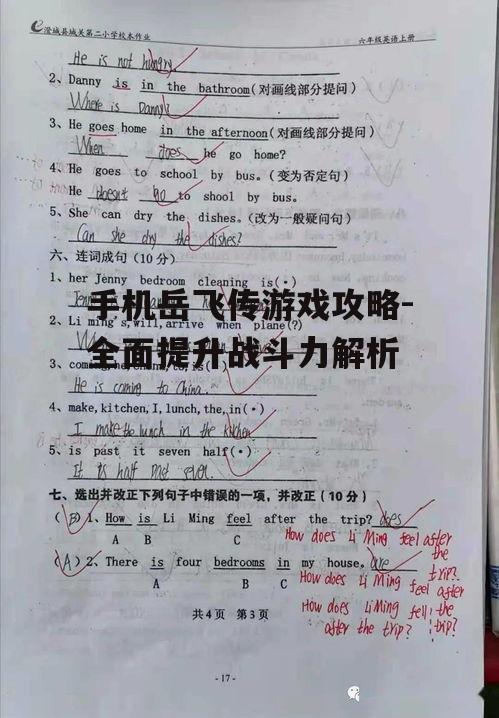 澄城县城关第二小学校本作业 六年级英语上册
He is not hungry
2、Danny is in the bathroom(对画线部分提问)
Where is Danny?
3、He goes home in the afternoon(对画线部分提问)
When does he go home?
4、He goes to school by bus.(变为否定句)
He doesn't go to shool by bus.
5、She can dry the dishes.(改为一般疑问句)
Can she dry the dishes?
六、连词成句(10分)
1、her Jenny bedroom cleaning is(·)
手机岳飞传游戏攻略-
2、Li ming's,will,arrive when plane(?)
全面提升战斗力解析
He is coming to China.
4、make,kitchen,I,lunch,the,in(·)
I make the lunch in the kitchen
5、is past it seven half(·)
It is half past seven.
七、选出并改正下列句子中错误的一项,并改正(10分)
(B)1、How is Li Ming feel after the trip? does
A B C
How does Li Ming feel after the trip?
(A)2、There is four bedrooms in my house. are
A B C
How does Li Ming feel after the trip?
How does Li Ming fell after the trip?
共4页 第3页
- 17 -